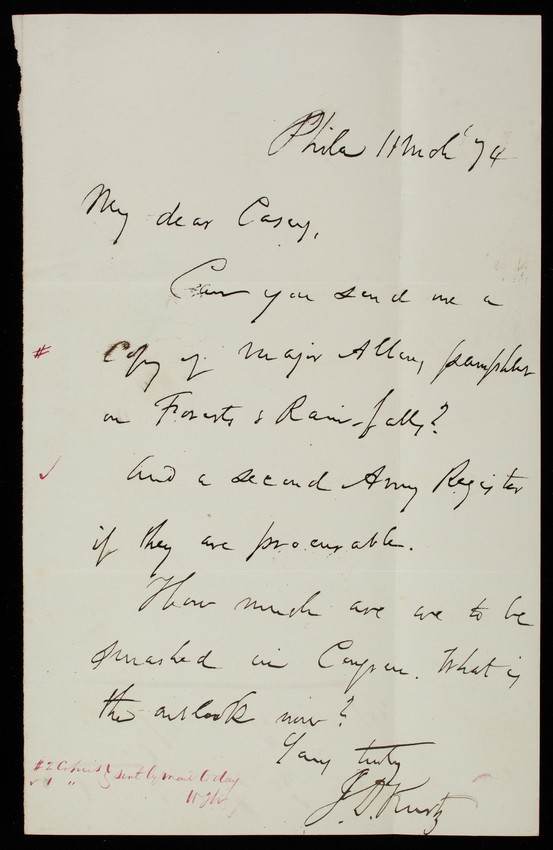 Phila 11 Mch '74
My dear Casey,
Can you send me a
# Copy of Major Allen's pamphlet
on Forests & Rain-falls?
✓ And a second Army Register
if they are procurable.
How much are we to be
smashed in Congress. What is
the outlook now?
Yours truly
J. D. Kurtz
# 2 Copies } sent by mail today
✓ 1 "